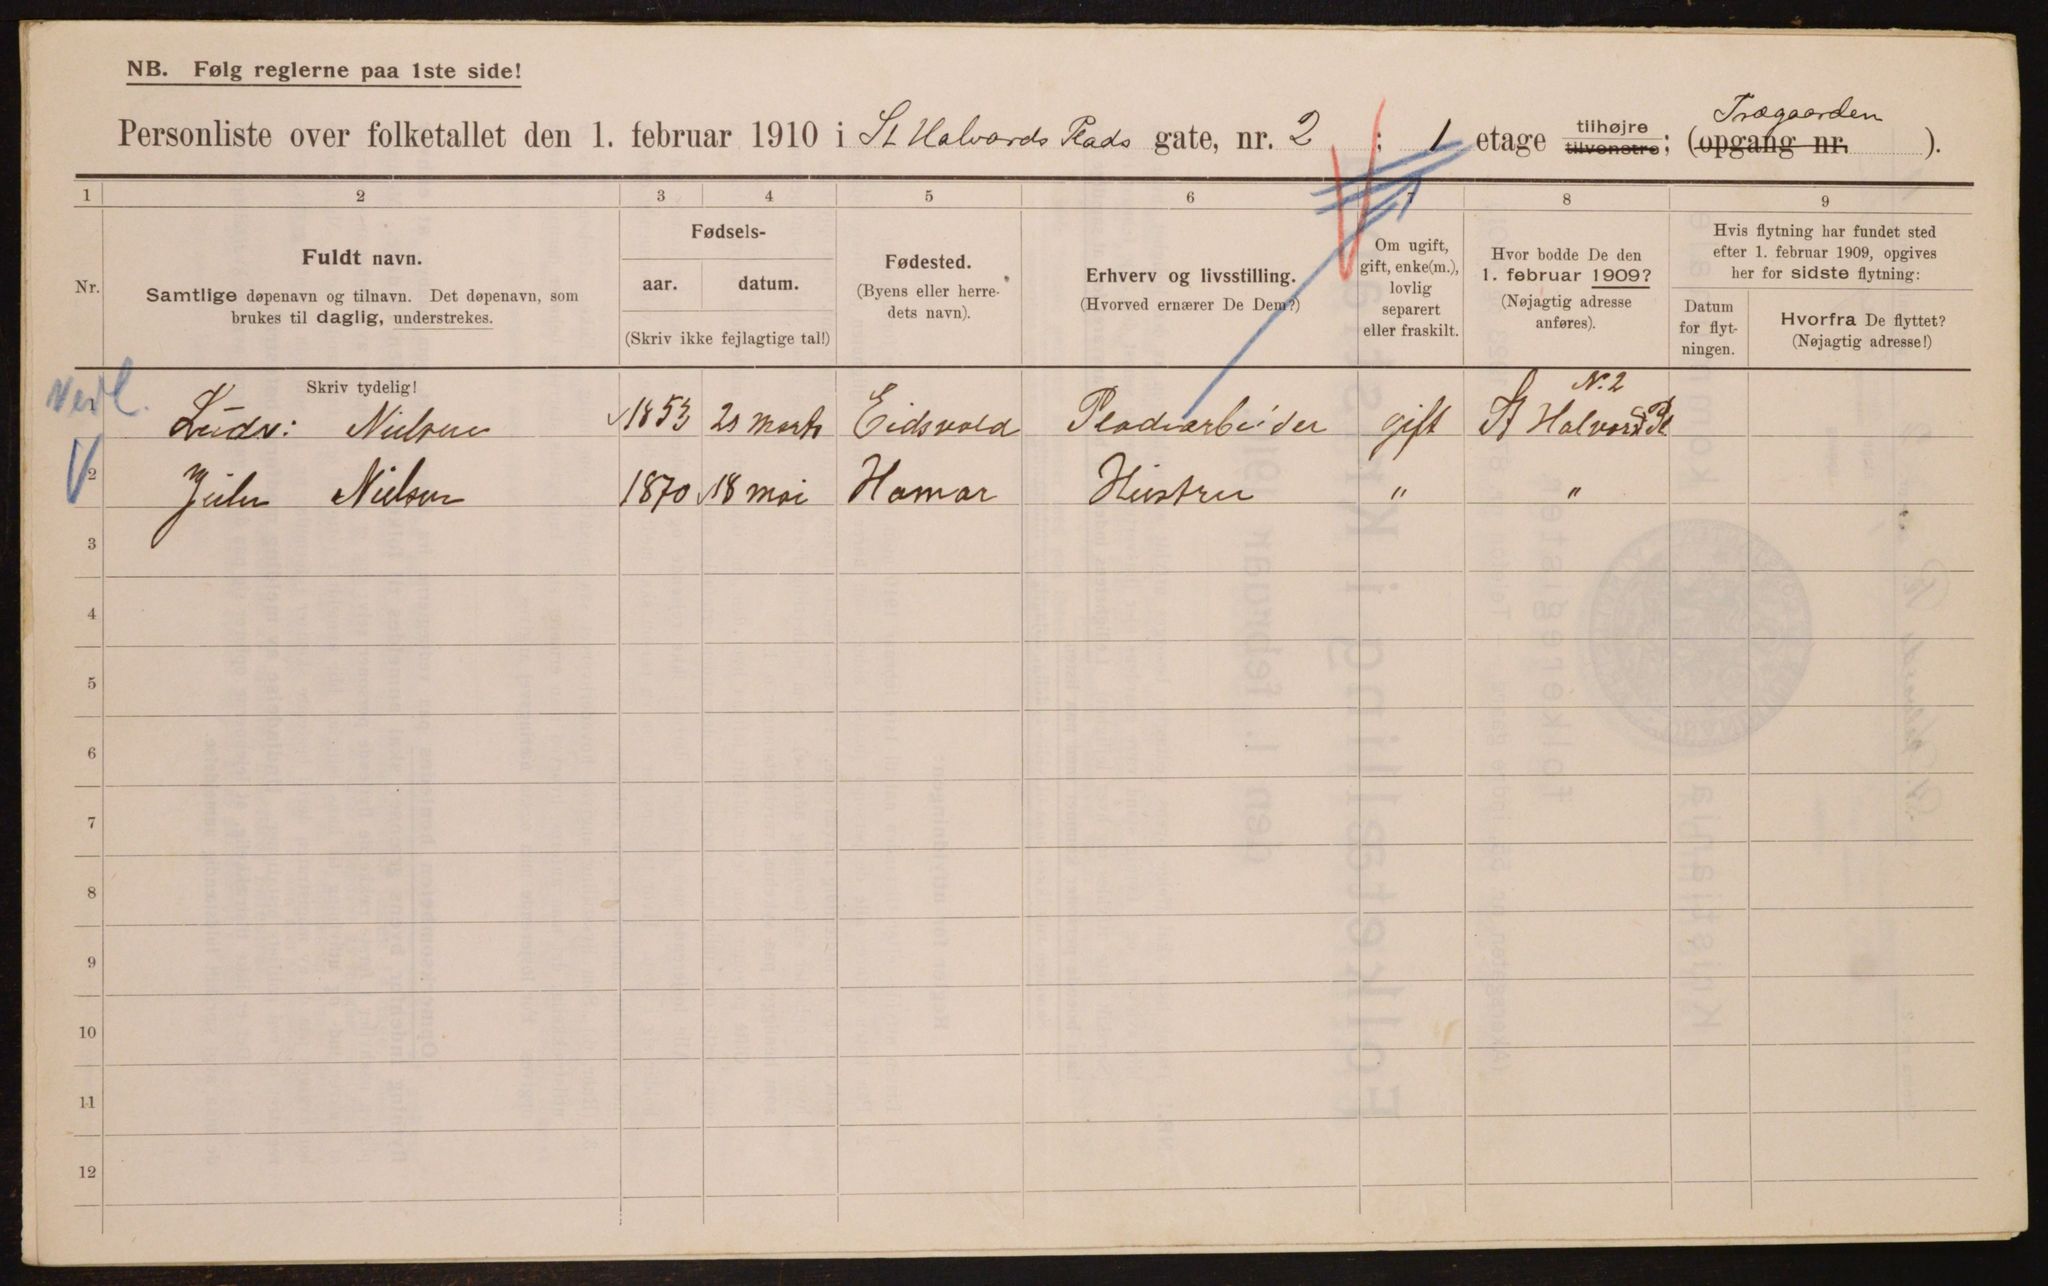 NB. Følg reglerne paa 1ste side!
Personliste over folketallet den 1. februar 1910 i St Halvards Plads gate, nr. 2 ; 1 etage tilhøjre tilvenstre; (opgang nr. Trægaarden ).
1 2 3 4 5 6 7 8 9
Nr.
Fuldt navn.
Samtlige døpenavn og tilnavn. Det døpenavn, som
brukes til daglig, understrekes.
Fødsels-
aar. datum.
(Skriv ikke fejlagtige tal!)
Fødested.
(Byens eller herre-
dets navn).
Erhverv og livsstilling.
(Hvorved ernærer De Dem?)
Om ugift,
gift, enke(m.),
lovlig
separert
eller fraskilt.
Hvor bodde De den
1. februar 1909?
(Nøjagtig adresse
anføres).
Hvis flytning har fundet sted
efter 1. februar 1909, opgives
her for sidste flytning:
Datum
for flyt-
ningen.
Hvorfra De flyttet?
(Nøjagtig adresse!)
Skriv tydelig!
Ludv: Nielsen 1853 marts Eidsvold gift St Halvards Pl N. 2
2 Nielsen 1870 18 mai Hamar Hustru " "
3
4
5
6
7
8
9
10
11
12